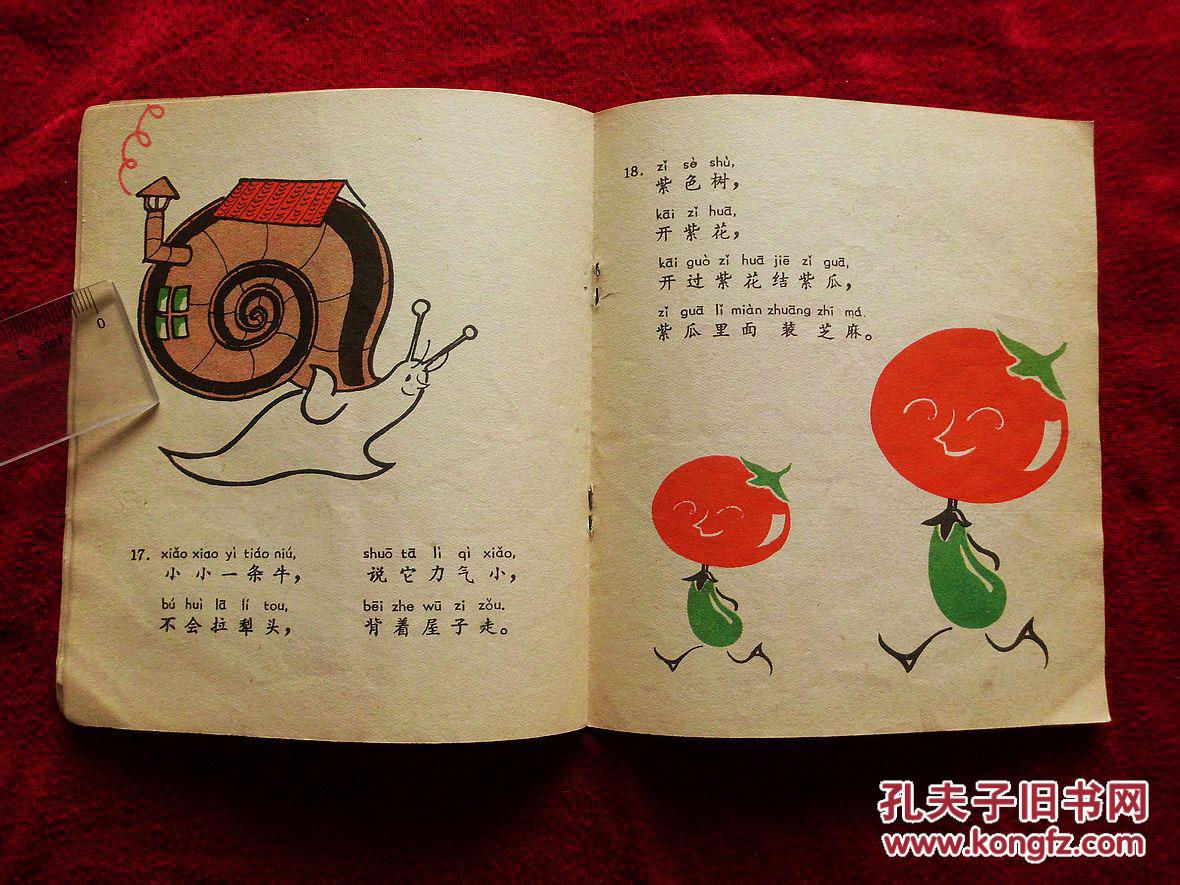 17. xiǎo xiao yì tiáo niú,
小小一条牛，
bú huì lā lí tou,
不会拉犁头，
shuō tā lì qì xiǎo,
说它力气小，
bēi zhe wū zi zǒu.
背着屋子走。
18. zǐ sè shù,
紫色树，
kāi zǐ huā,
开紫花，
kāi guò zǐ huā jiē zǐ guā,
开过紫花结紫瓜，
zǐ guā lǐ miàn zhuāng zhī má.
紫瓜里面装芝麻。
0
5
孔夫子旧书网
www.kongfz.com